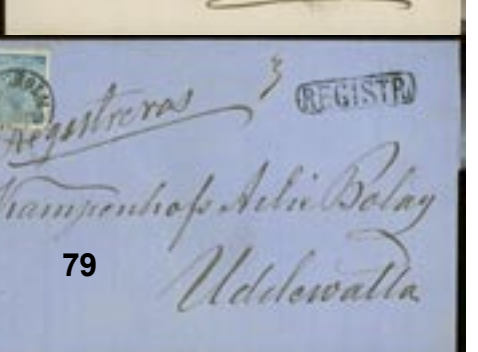 Registreras 3 REGISTR.
Kampenhofs Aktie Bolag
79
Uddewalla